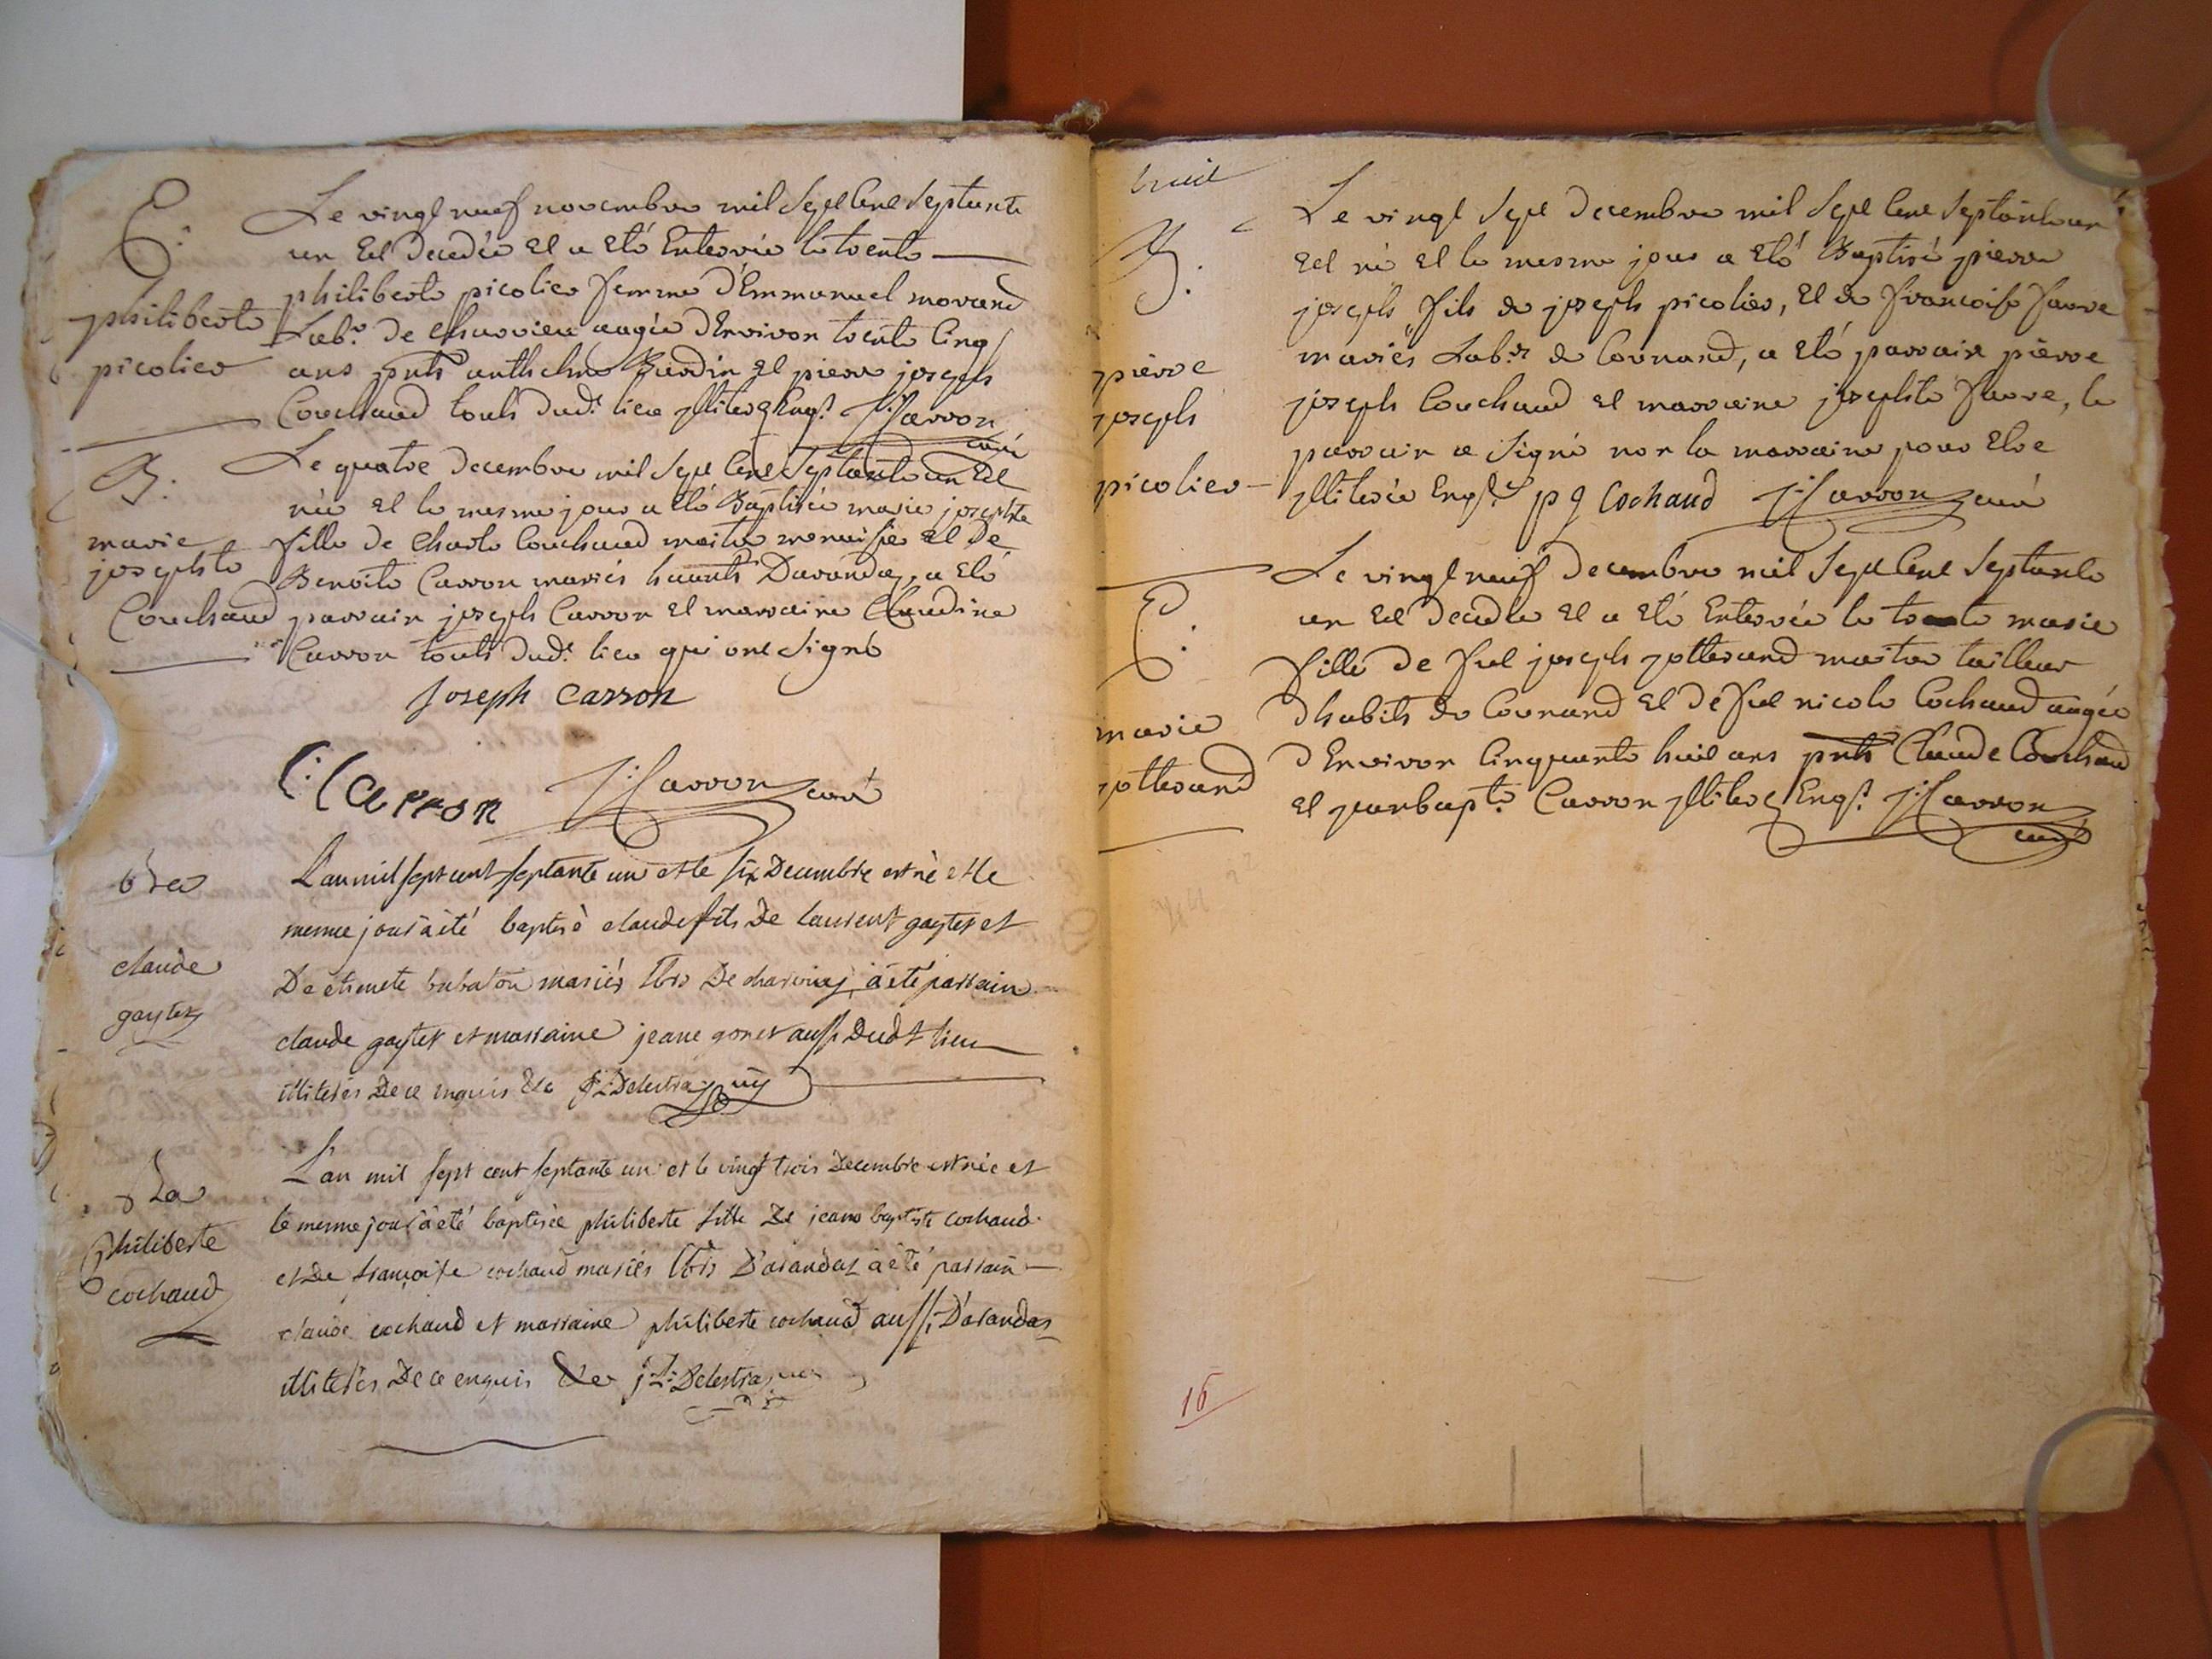 E.
philiberte
picolier
Le vingt neuf novembre mil Sept Cent Septante
un Est Decedée Et a Eté Enterrée le trente
philiberte picolier femme d'Emmanuel morand
Lab.r de Charvieu aagée d'Environ trente Cinq
ans pnts anthelme Burdin Et pierre joseph
Couchaud touts dud.t lieu jlliterez Enq.s J: Carron
curé
B.
marie
josephte
Couchaud
Le quatre Decembre mil Sept Cent Septante un Est
née et le mesme jour a Eté Baptisée marie josephte
fille de Charle Couchaud maitre menuisier Et De
Benoite Carron mariés Darandaz, a Eté
parrain joseph Carron Et marraine Claudine
Carron touts dud.t lieu qui ont Signé
Joseph Carron
C: Carron J: Carron curé
6 Xre
claude
gaytet
L'an mil sept cent septante un et le six Decembre est né et le
mesme jour à été baptisé claude fils De laurent gaytet et
De mariés Lbrs De , à été parrain
claude gaytet et marraine jeane aussi Dudt lieu
illiterés De ce enquis J: L: Delestra
La
philiberte
cochaud
L'an mil sept cent septante un et le vingt trois Decembre est née et
le mesme jour à été baptisée philiberte fille De jean baptiste cochaud
et De françoise cochaud mariés Lbrs D'arandas à été parrain
claude cochaud et marraine philiberte cochaud aussi D'arandas
illiterés De ce enquis j: L: Delestra
huit
B.
pierre
joseph
picolier
Le vingt Sept Decembre mil Sept Cent Septante un
Est né Et le mesme jour a Eté Baptisé pierre
joseph fils de joseph picolier, Et de francoise favre
mariés Lab.rs de Cornand, a Eté parrain pierre
joseph Couchaud Et marraine josephte favre, le
parrain a Signé non la marraine pour Etre
jlliterée Enq.se p j Cochaud J: Carron curé
E.
marie
jotterand
Le vingt neuf Decembre mil Sept Cent Septante
un Est Decedée Et a Eté Enterrée le trente marie
fille de feu joseph jotterand maitre tailleur
d'habits de Cornand Et de feu nicole Cochaud aagée
d'Environ Cinquante huit ans pnts Claude Couchaud
Et jeanbapt.e Carron jlliterez Enq.s J: Carron
curé
16